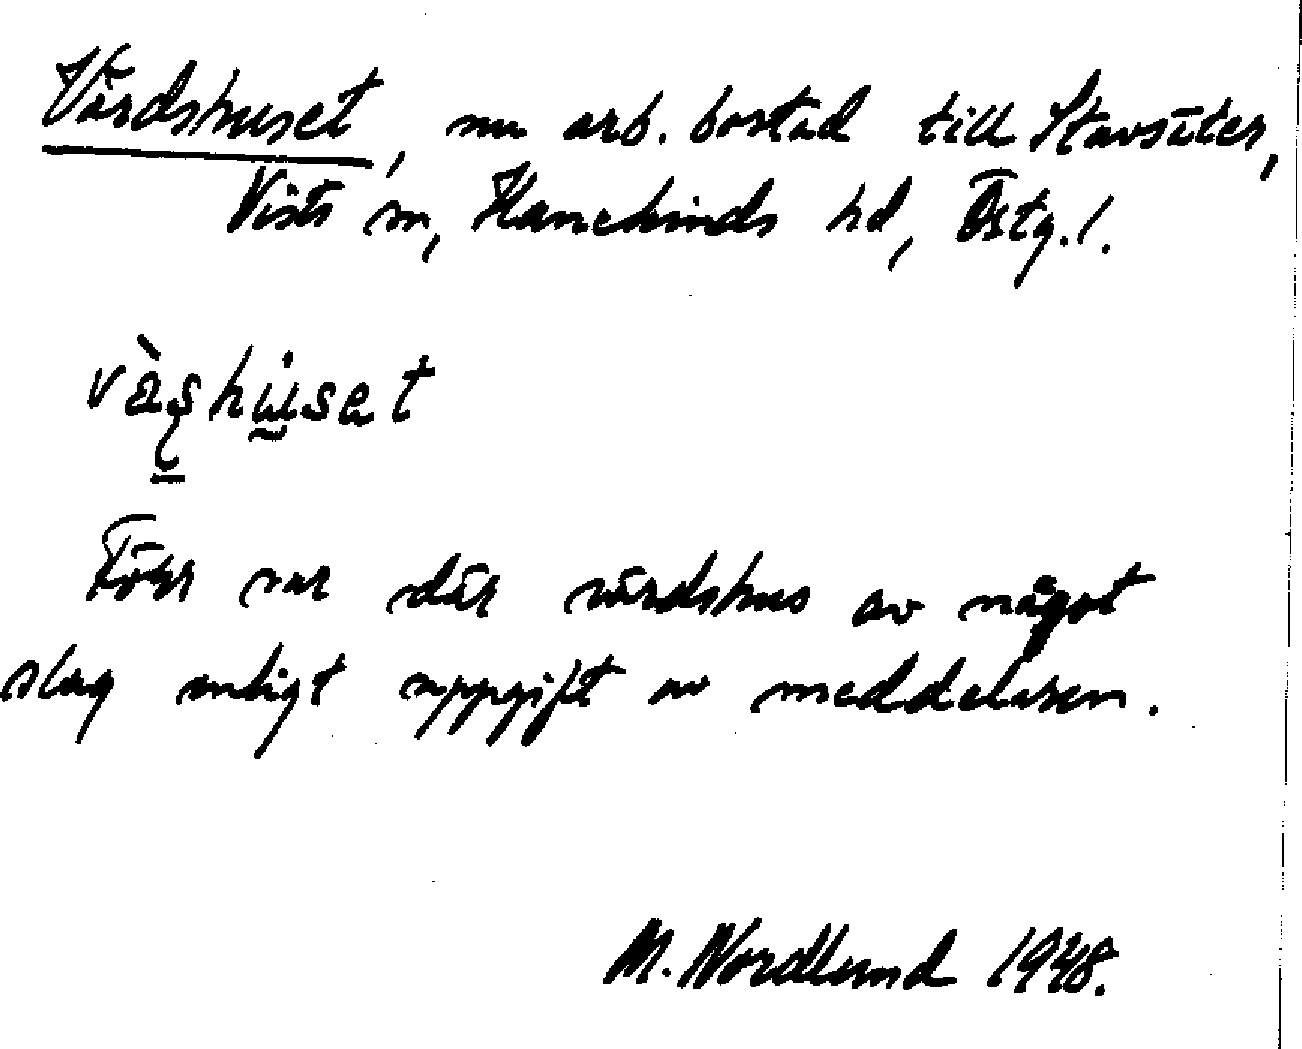 Värdshuset, nu arb. bostad till Stavsäter,
Vists sn, Hanekinds hd, Östg. l.
vàshu̇set
Förr var där värdshus av något
slag enligt uppgift av meddelaren.
M. Nordlund 1948.